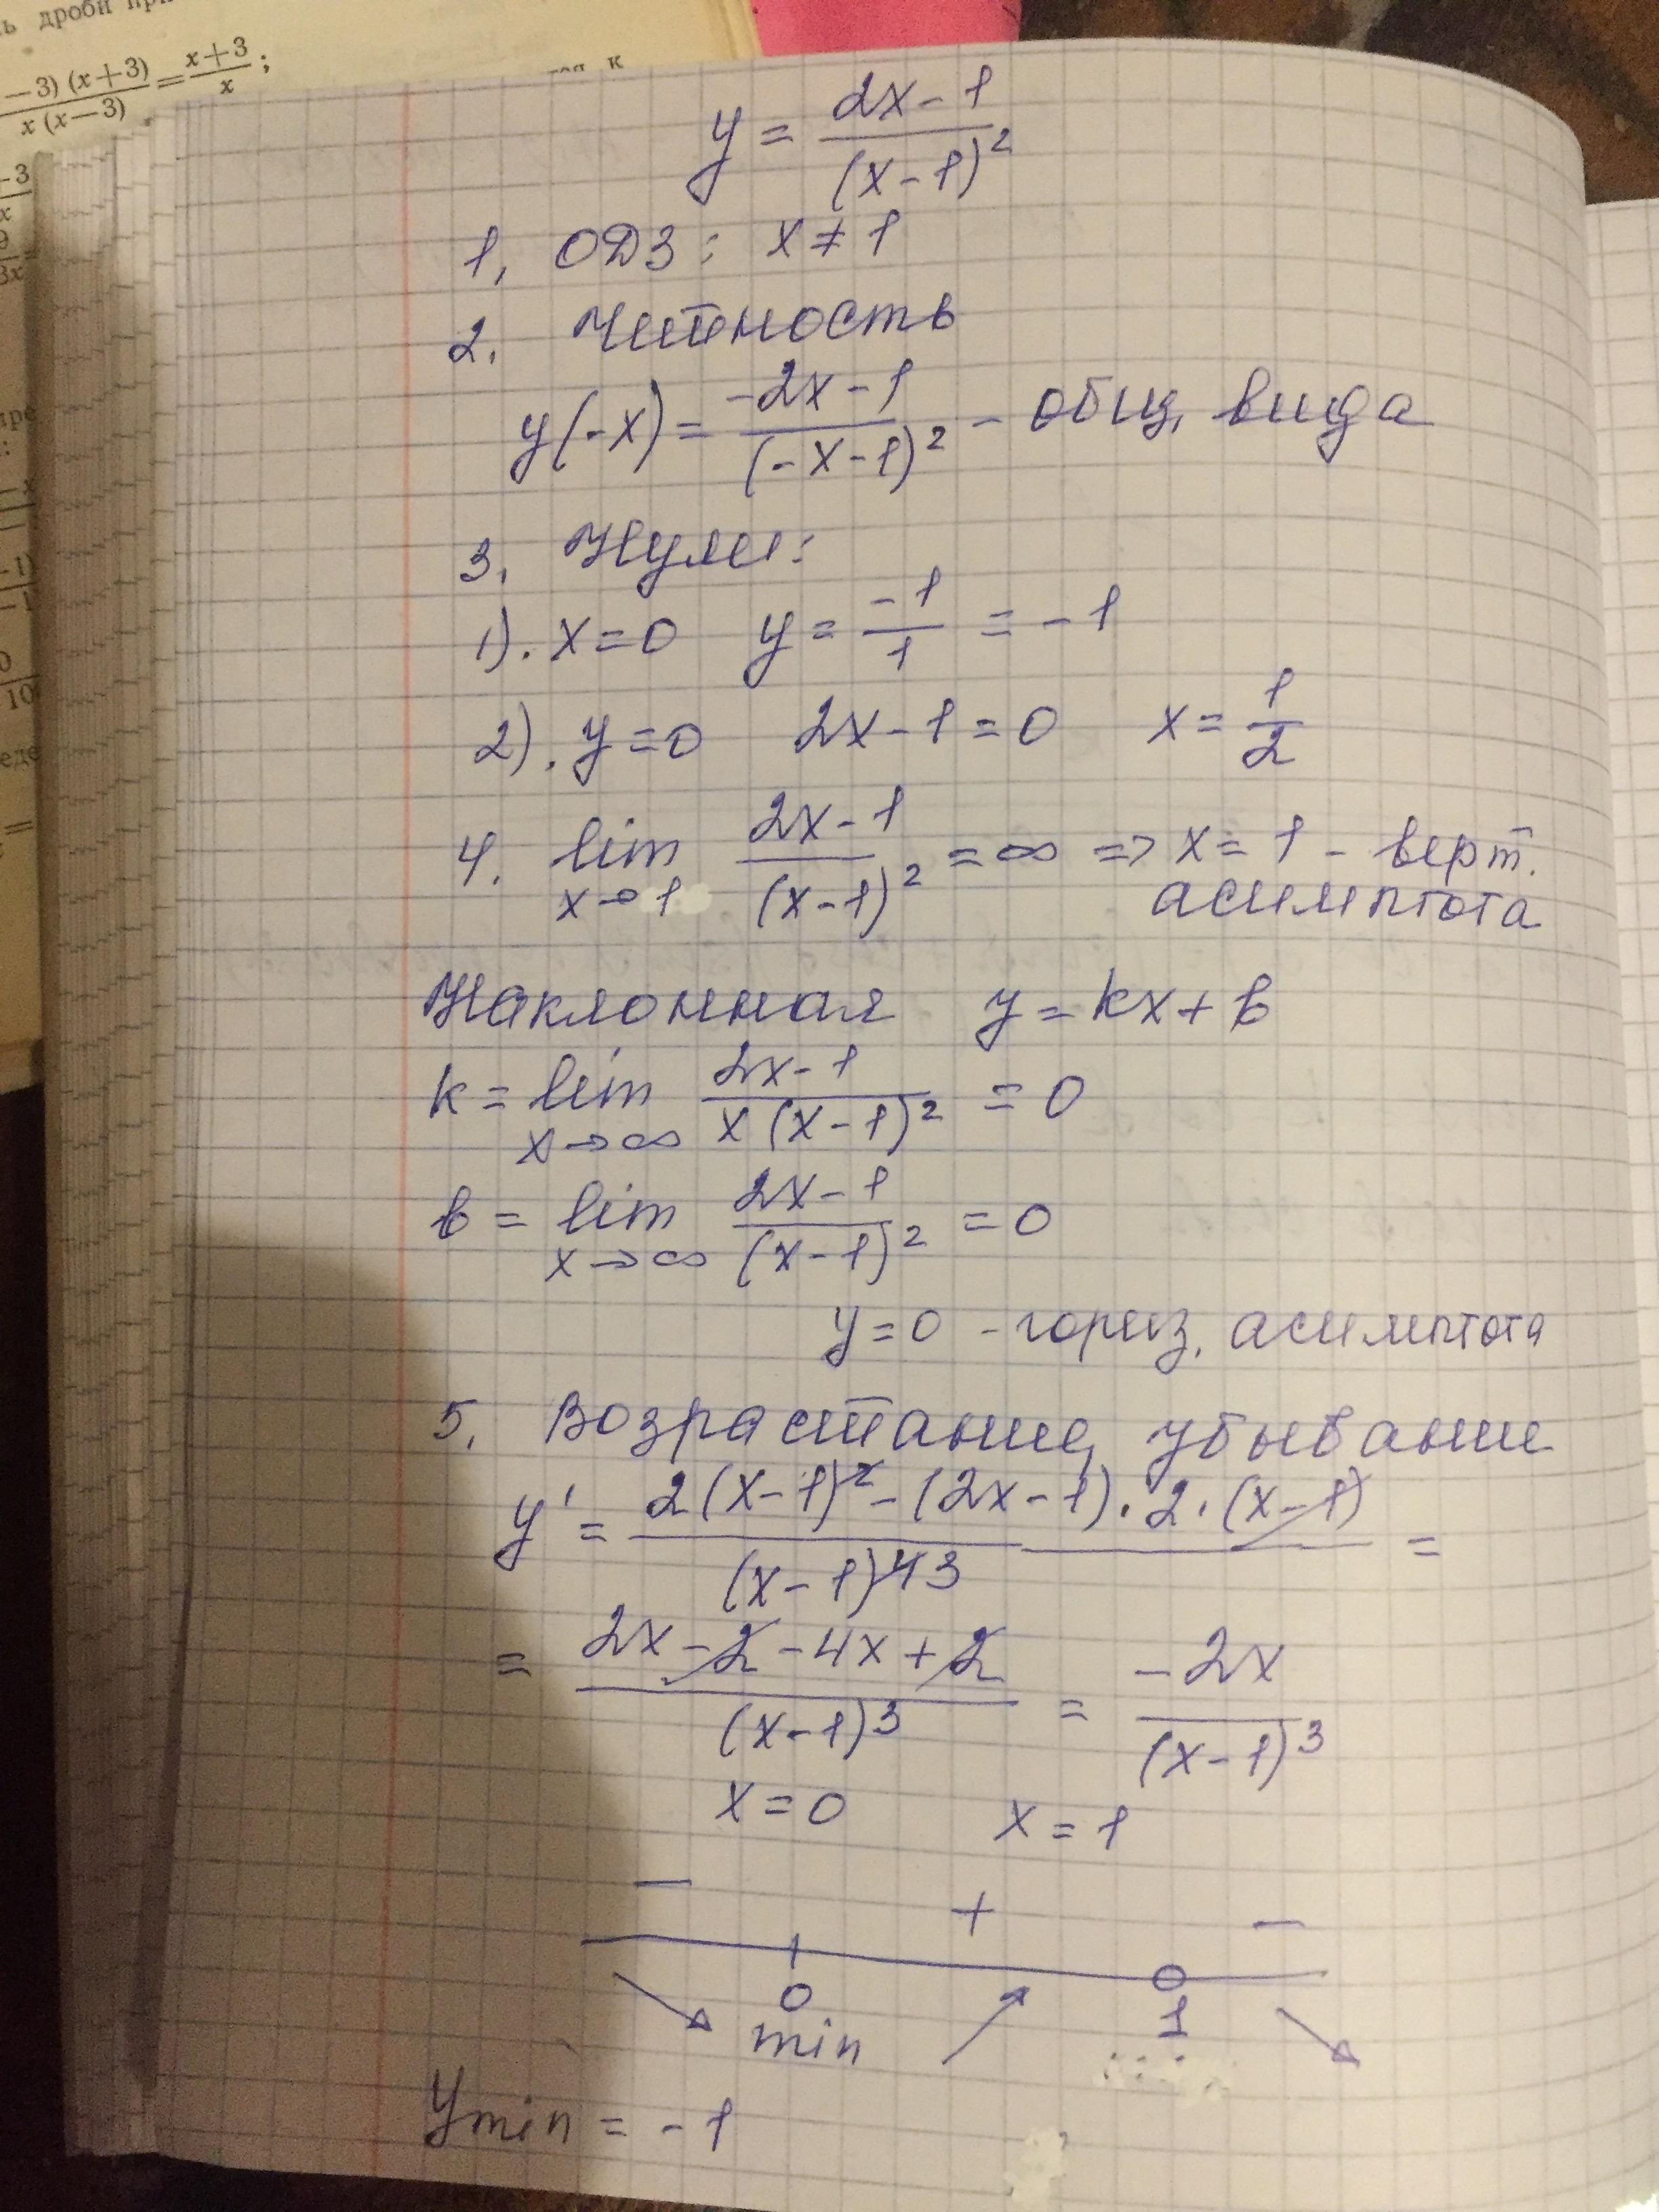 ь дроби при
−3) (x+3) / x (x−3) = x+3 / x ;
y = 2x-1 / (x-1)²
1. ОДЗ: x ≠ 1
2. Четность
y(-x) = -2x-1 / (-x-1)² - общ. вида
3. Нули:
1). x=0 y = -1/1 = -1
2). y=0 2x-1=0 x = 1/2
4. lim x→1 2x-1 / (x-1)² = ∞ => x=1 - верт.
асимптота
Наклонная y = kx + b
k = lim x→∞ 2x-1 / x(x-1)² = 0
b = lim x→∞ 2x-1 / (x-1)² = 0
y=0 - гориз. асимптота
5. Возрастание, убывание
y' = 2(x-1)² - (2x-1)·2·(x-1) / (x-1)⁴ ³ =
= 2x-2-4x+2 / (x-1)³ = -2x / (x-1)³
x=0 x=1
− + −
0 1
min
Ymin = -1